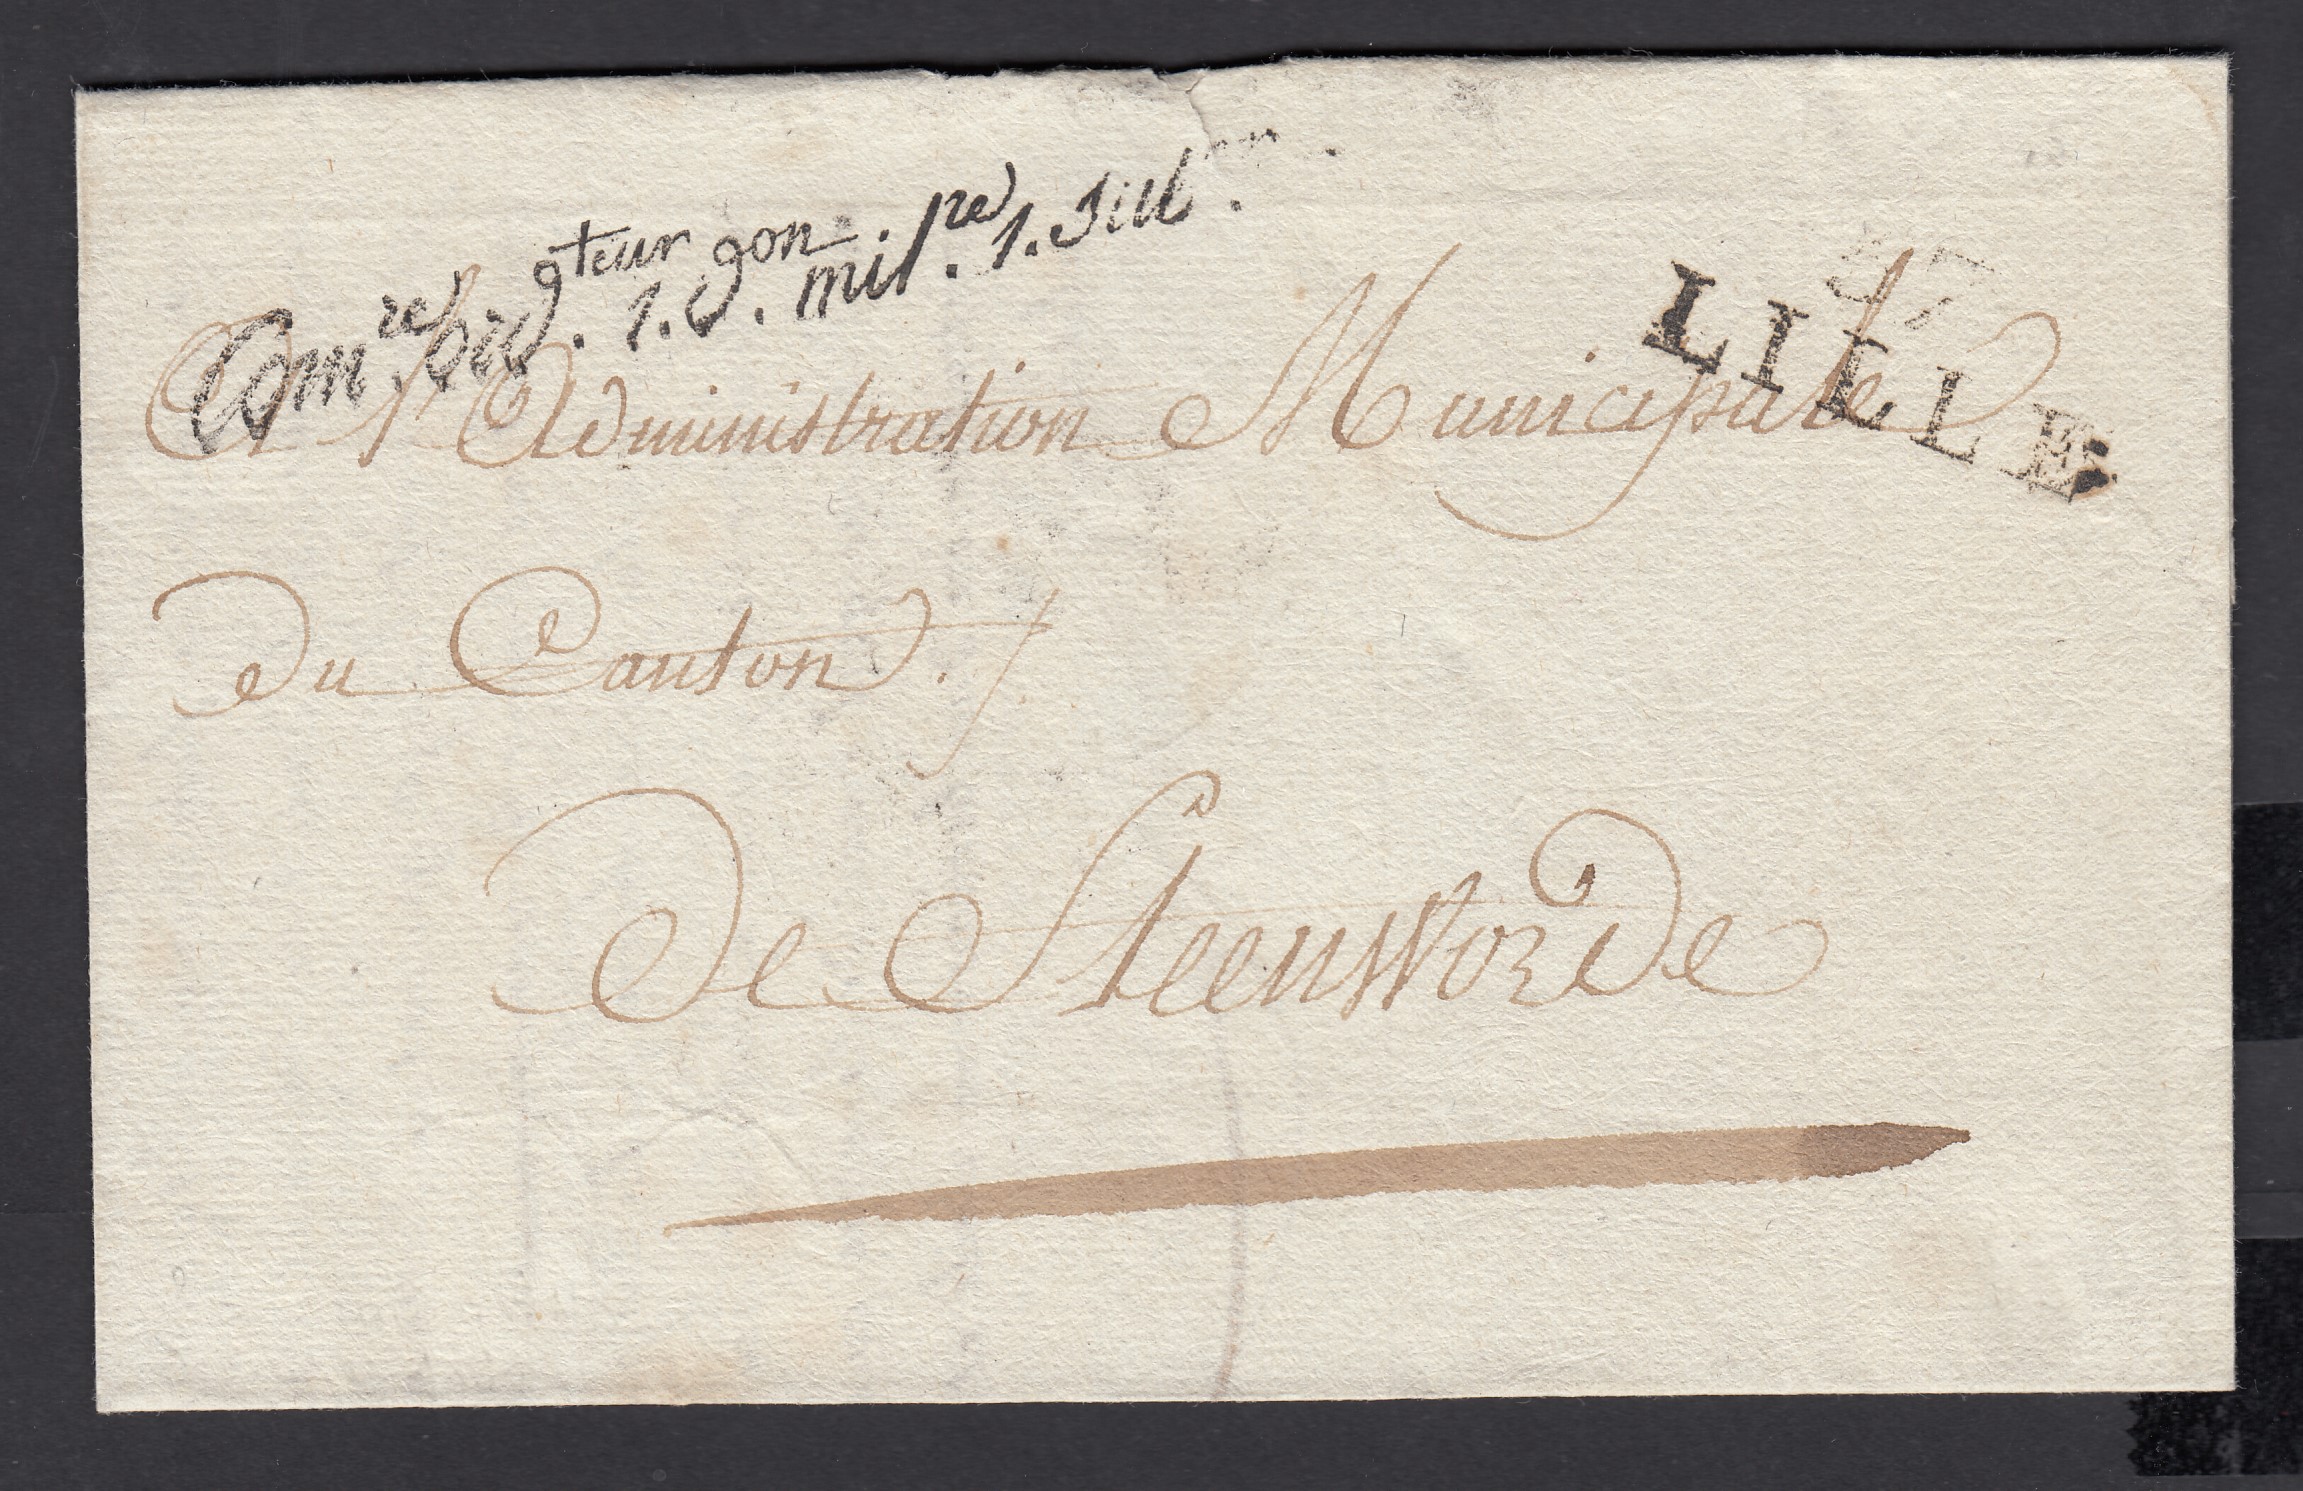 Com.re bid. gteur 1.9.gon mil.re 1.
57
LILLE
A l'Administration Municipale
du Canton./.
de SteenWorde